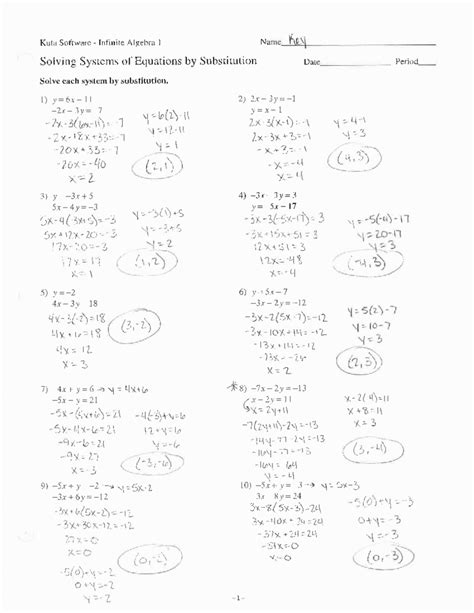 Kuta Software - Infinite Algebra 1
Name Key
Solving Systems of Equations by Substitution
Date
Period
Solve each system by substitution.
1) y = 6x - 11
-2x - 3y = -7
-2x-3(6x-11) = -7
-2x-18x+33=-7
-20x+33=-7
-20x=-40
x=2
y=6(2)-11
y=12-11
y=1
(2,1)
2) 2x - 3y = -1
y = x - 1
2x-3(x-1)=-1
2x-3x+3=-1
-x+3=-1
-x=-4
x=4
y=4-1
y=3
(4,3)
3) y -3x + 5
5x - 4y = -3
5x-4(-3x+5)=-3
5x+12x-20=-3
17x-20=-3
x=1
y=-3(1)+5
y=-3+5
y=2
(1,2)
4) -3x 3y = 3
y = 5x - 17
-3x-3(-5x-17)=3
-3x+15x+51=3
12x+51=3
12x=-48
x=-4
y=-5(-4)-17
y=20-17
y=3
(-4,3)
5) y = -2
4x - 3y 18
4x-3(-2)=18
4x+6=18
4x=12
x=3
(3,-2)
6) y 5x - 7
-3x - 2y = -12
-3x-2(5x-7)=-12
-3x-10x+14=-12
-13x+14=-12
-13x=-26
x=2
y=5(2)-7
y=10-7
y=3
(2,3)
7) 4x + y = 6 → y=4x+6
-5x - y = 21
-5x-(4x+6)=21
-9x-6=21
-9x=27
x=-3
-4(-3)+y=6
y=-6
(-3,-6)
*8) -7x - 2y = -13
x - 2y = 11
-14y-77-2y=-13
-16y-77=-13
-16y=64
y=-4
x-2(-4)=11
x+8=11
x=3
(3,-4)
9) -5x + y -2 → y=5x-2
-3x + 6y = -12
-3x+6(5x-2)=-12
-3x+30x-12=-12
27x-12=-12
27x=0
x=0
-5(0)+y=-2
y=-2
(0,-2)
10) -5x + y = 3 → y=5x-3
3x 8y = 24
3x-8(5x-3)=24
3x-40x+24=24
-37x+24=24
-37x=0
x=0
-5(0)+y=-3
0+y=-3
y=-3
(0,-3)
-1-